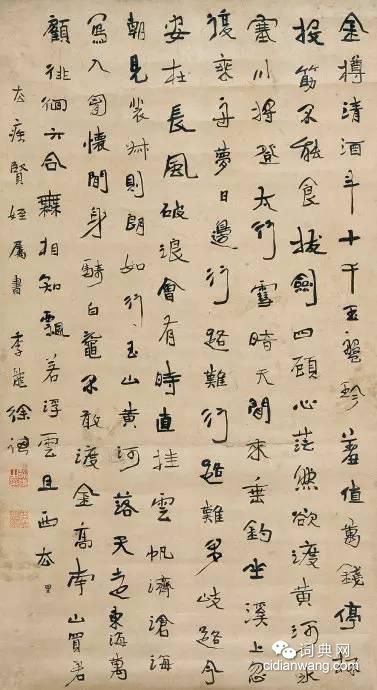 金樽清酒斗十千玉盤珍羞值萬錢停杯
投筯不能食拔劍四顧心茫然欲渡黃河冰
塞川將登太行雪暗天閒來垂釣坐溪上忽
復乘舟夢日邊行路難行路難多岐路今
安在長風破浪會有時直挂雲帆濟滄海
朝見裴叔則朗如行玉山黃河落天走東海萬
寫入胷懷間身騎白黿不敢渡金高南山買君
顧徘徊六合無相知飄若浮雲且西去 里
賢姪屬書 徐
词典网
cidianwang.com